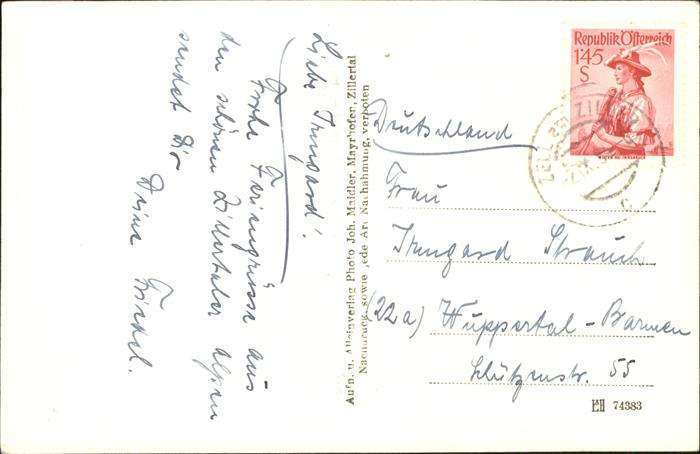 Liebe Irmgard!
Frohe Feriengrüsse aus
den schönen Zillertaler Alpen
sendet Dir
Deine Friedel.
Aufn. u. Alleinverlag Photo Joh. Maidler, Mayrhofen, Zillertal
Nachdruck sowie jede Art Nachahmung verboten
Republik Österreich
1'45
S
ZELL
ZILLER
Deutschland
Frau
Irmgard Strauch
(22a) Wuppertal-Barmen
Schützenstr. 55
74383